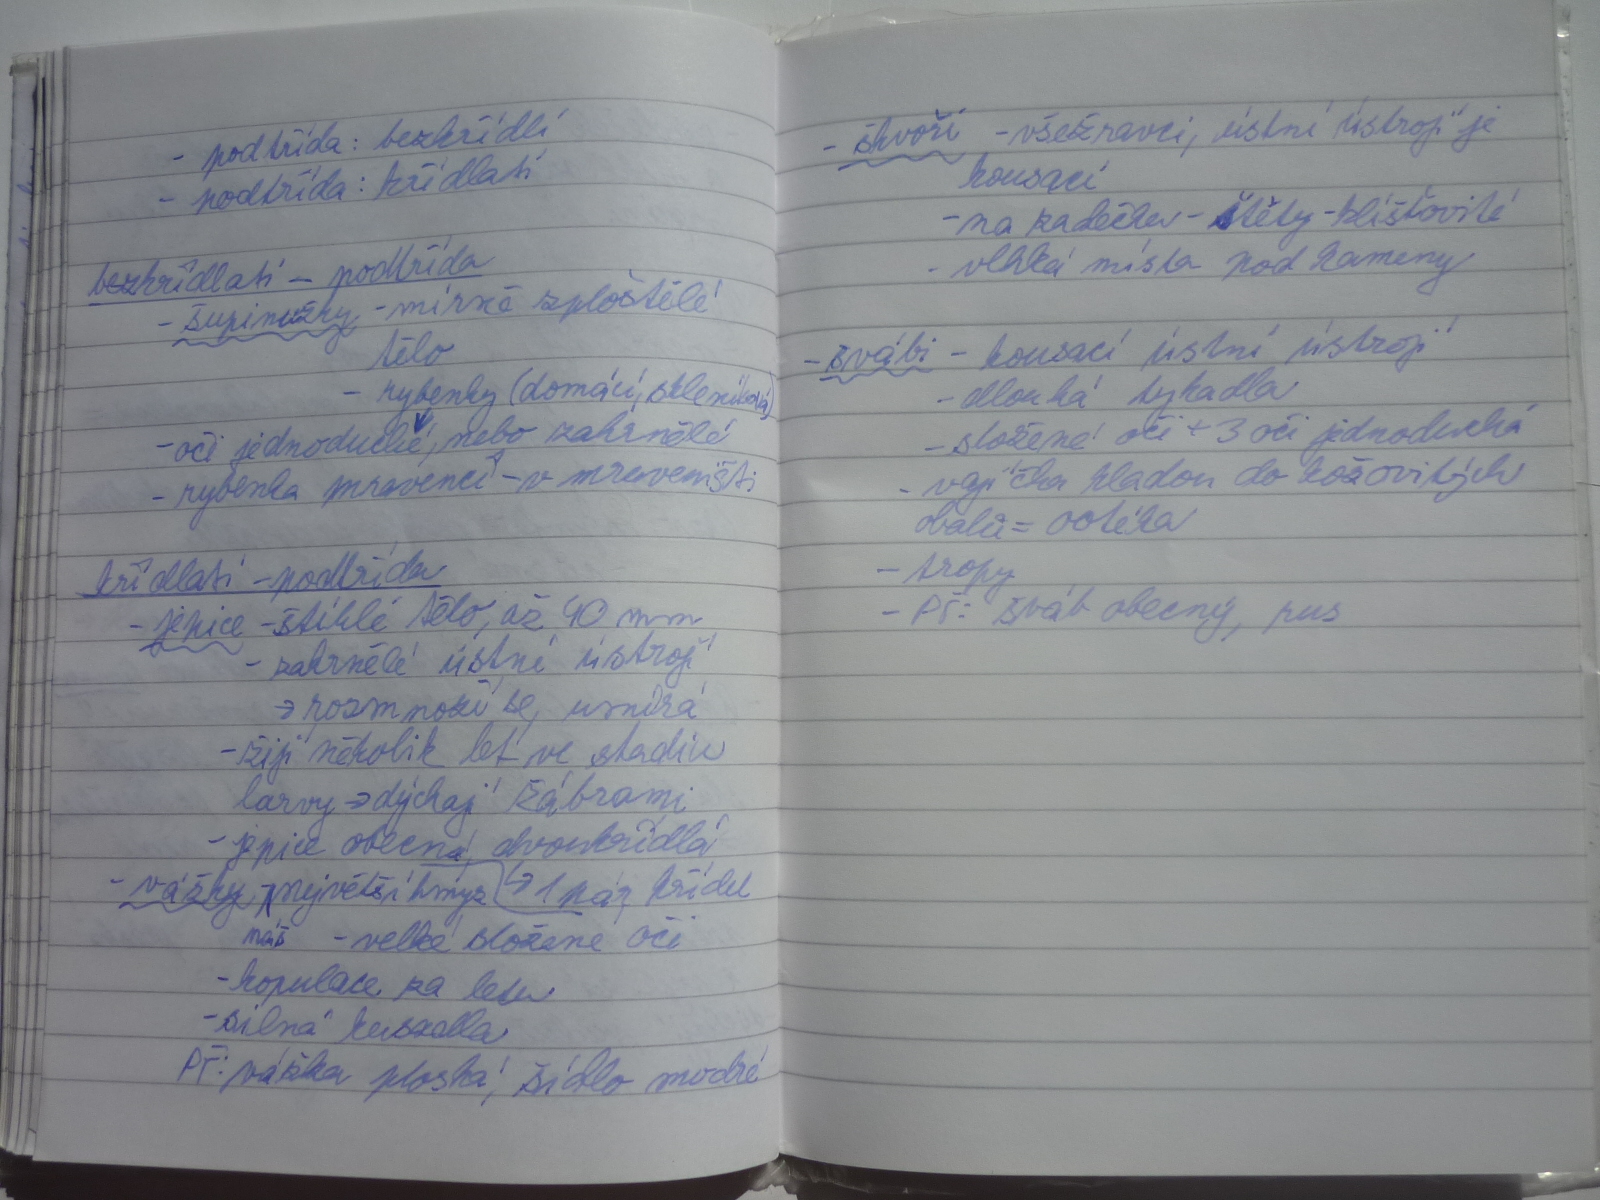 - podtřída: bezkřídlí
- podtřída: křídlatí
bezkřídlatí - podtřída
- šupinušky - mírně zploštělé
tělo
- rybenky (domácí, skleníková)
- oči jednoduché, nebo zakrnělé
- rybenka mravenčí - v mraveništi
křídlatí - podtřída
- jepice - štíhlé tělo, až 40 mm
- zakrnělé ústní ústrojí
→ rozmnoží se, umírá
- žijí několik let ve stadiu
larvy → dýchají žábrami
- jepice obecná, dvoukřídlá
↳ 1 pár křídel
- vážky - největší hmyz
náš - velké složené oči
- kopulace za letu
- silná kusadla
Př: vážka ploská, šídlo modré
- škvoři - všežravci, ústní ústrojí je
kousací
- na zadečku - štěty - klišťovité
- vlhká místa pod kameny
- švábi - kousací ústní ústrojí
- dlouhá tykadla
- složené oči + 3 oči jednoduchá
- vajíčka kladou do kožovitých
obalů = ootéka
- tropy
- Př: šváb obecný, rus